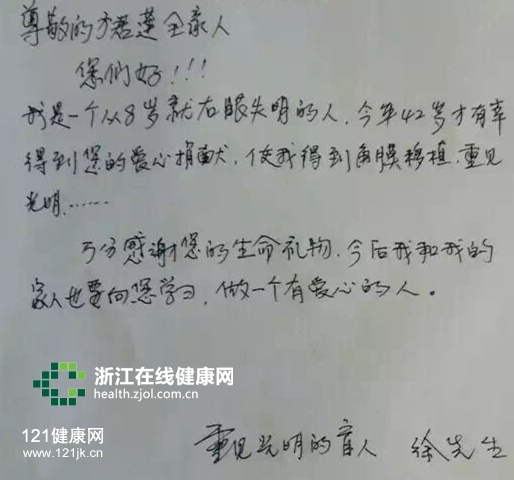 尊敬的方君莲全家人
您们好!!!
我是一个从8岁就右眼失明的人,今年42岁才有幸
得到您的爱心捐献,使我得到角膜移植.重见
光明……
万分感谢您的生命礼物,今后我和我的
家人也要向您学习,做一个有爱心的人。
浙江在线健康网
health.zjol.com.cn
121健康网
www.121jk.cn
重见光明的盲人 徐先生